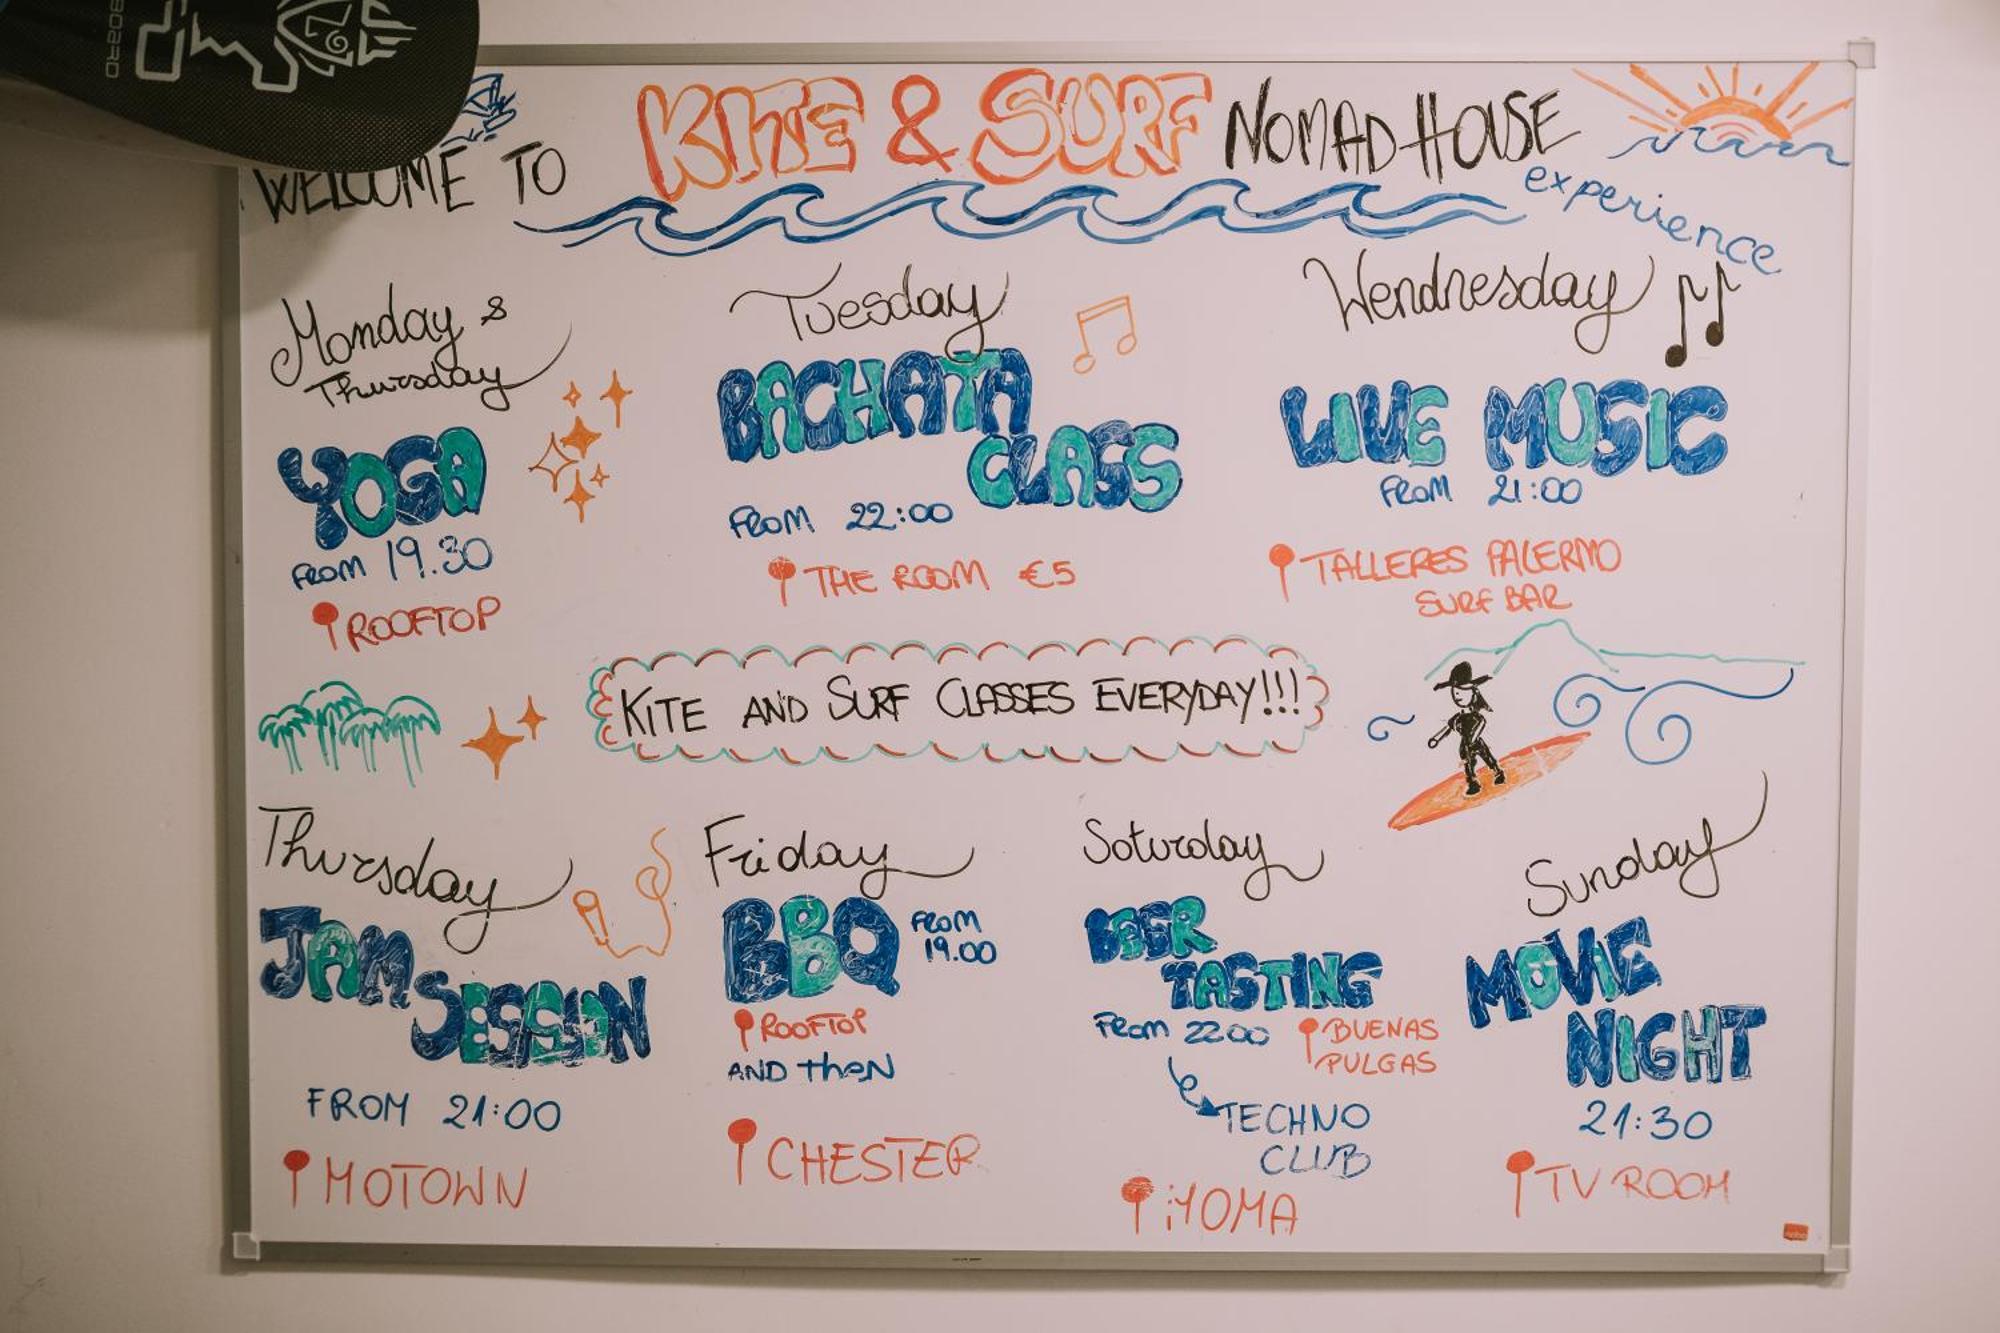 BOARD
WELCOME TO KITE & SURF NOMAD HOUSE
experience
Monday &
Thursday
YOGA
FROM 19.30
ROOFTOP
Tuesday
BACHATA
CLASS
FROM 22:00
THE ROOM €5
Wendnesday
LIVE MUSIC
FROM 21:00
TALLERES PALERMO
SURF BAR
KITE AND SURF CLASSES EVERYDAY!!!
Thursday
JAM
SESSION
FROM 21:00
MOTOWN
Friday
BBQ FROM
19.00
ROOFTOP
AND then
CHESTER
Saturday
BEER
TASTING
FROM 2200
BUENAS
PULGAS
TECHNO
CLUB
Sunday
MOVIE
NIGHT
21:30
TV ROOM